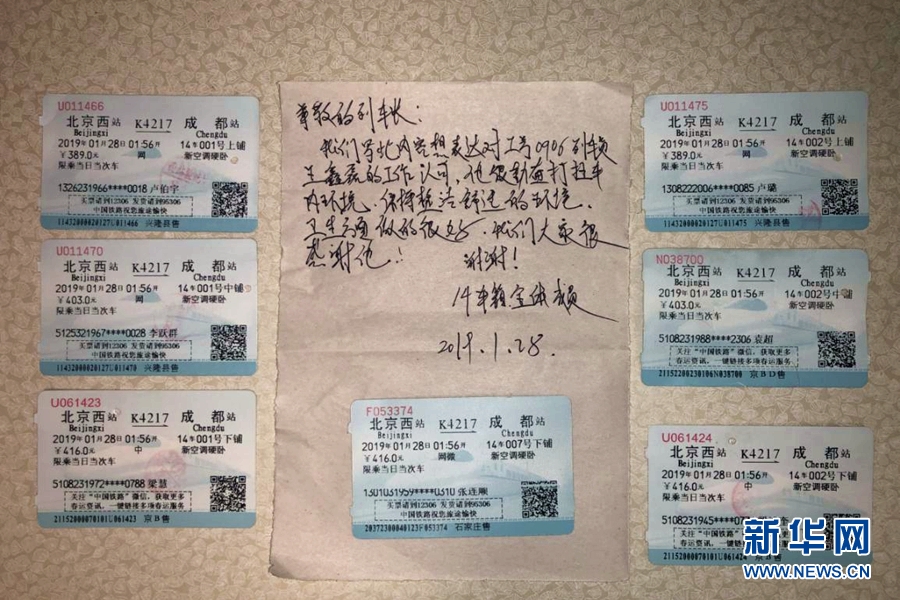 U011466
北京西站 K4217 成都站
Beijingxi Chengdu
2019年01月28日01:56开 14车001号上铺
￥389.0元 网 新空调硬卧
限乘当日当次车
1326231966****0018 卢伯宇
买票请到12306 发货请到95306
中国铁路祝您旅途愉快
11432000020127U011466 兴隆县售
U011470
北京西站 K4217 成都站
Beijingxi Chengdu
2019年01月28日01:56开 14车001号中铺
￥403.0元 网 新空调硬卧
限乘当日当次车
5125321967****0028 李跃群
买票请到12306 发货请到95306
中国铁路祝您旅途愉快
11432000020127U011470 兴隆县售
U061423
北京西站 K4217 成都站
Beijingxi Chengdu
2019年01月28日01:56开 14车001号下铺
￥416.0元 中 新空调硬卧
限乘当日当次车
5108231972****0788 梁慧
关注“中国铁路”微信，获取更多
春运资讯，一键链接多项春运服务
21152000070101U061423 京B售
尊敬的列车长：
我们写此内容想表达对工号0906列车员
的工作认可，他很勤奋打扫车
内环境，保持整洁舒适的环境。
卫生方面做的很好，我们大家很
感谢他！ 谢谢！
14车箱全体成员
2019.1.28.
F053374
北京西站 K4217 成都站
Beijingxi Chengdu
2019年01月28日01:56开 14车007号下铺
￥416.0元 网微 新空调硬卧
限乘当日当次车
1301031959****0310 张连顺
买票请到12306 发货请到95306
中国铁路祝您旅途愉快
20372300040123F053374 石家庄售
U011475
北京西站 K4217 成都站
Beijingxi Chengdu
2019年01月28日01:56开 14车001号上铺
￥389.0元 网 新空调硬卧
限乘当日当次车
1308222006****0085 卢璐
买票请到12306 发货请到95306
中国铁路祝您旅途愉快
11432000020127U011475 兴隆县售
N038700
北京西站 K4217 成都站
Beijingxi Chengdu
2019年01月28日01:56开 14车002号中铺
￥403.0元 网 新空调硬卧
限乘当日当次车
5108231988****2306 袁超
关注“中国铁路”微信，获取更多
春运资讯，一键链接多项春运服务
21152200230106N038700 京BD售
U061424
北京西站 K4217 成都站
Beijingxi Chengdu
2019年01月28日01:56开 14车002号下铺
￥416.0元 中 新空调硬卧
限乘当日当次车
5108231945****07
关注“中国铁路”
春运资讯，一键链
21152000070101U061424 京B售
新华网
WWW.NEWS.CN